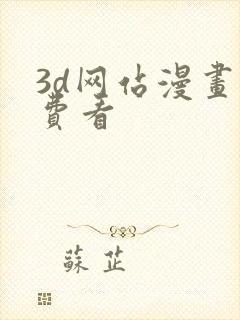 3d网佔漫畫
費看
蘇芷